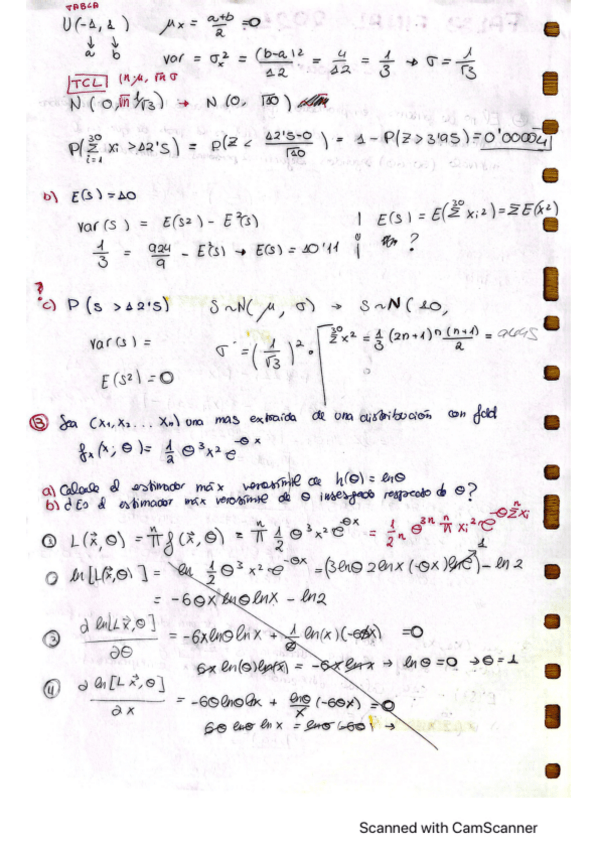 TABLA
U(-1, 1) μx = a+b/2 = 0
a b
var = σx² = (b-a)²/12 = 4/12 = 1/3 → σ = 1/√3
TCL (nμ, √n σ
N(0, √n 1/√3) → N(0, √10)
P(Σ xi > 12'5) = P(Z < 12'5-0/√10) = 1 - P(Z > 3'95) = 0'00004
30
i=1
b) E(S) = 10
var(S) = E(S²) - E²(S) | E(S) = E(Σ xi²) = ΣE(x²)
1/3 = 924/9 - E²(S) → E(S) = 10'11 ?
?
c) P(S > 12'5) S~N(μ, σ) → S~N(10,
var(S) = σ = (1/√3)² · √ Σx² = 1/3 (2n+1) n (n+1)/2 = 9445
E(S²) = 0
③ Sea (x1, x2 ... xn) una mas extraída de una distribución con fdd
fx(x; θ) = 1/2 θ³ x² e^-θx
a) Calcule el estimador máx verosímil de h(θ) = lnθ
b) ¿Es el estimador máx verosímil de θ insesgado respecto de θ?
① L(x⃗, θ) = π f(x⃗, θ) = π 1/2 θ³ x² e^-θx = 1/2^n θ^3n π xi² e^-θΣxi
② ln[L(x⃗, θ)] = ln 1/2 θ³ x² e^-θx = (3lnθ 2lnx (-θx) lne) - ln2
1
= -6θx lnθ lnx - ln2
③ ∂ ln[L x⃗, θ]/∂θ = -6x lnθ lnx + 1/θ ln(x)(-6θx) = 0
6x ln(θ) ln(x) = -6x lnx → lnθ = 0 → θ = 1
④ ∂ ln[L x⃗, θ]/∂x = -6θ lnθ lnx + lnθ/x (-6θx) = 0
6θ lnθ lnx = lnθ (-6θ) →
Scanned with CamScanner